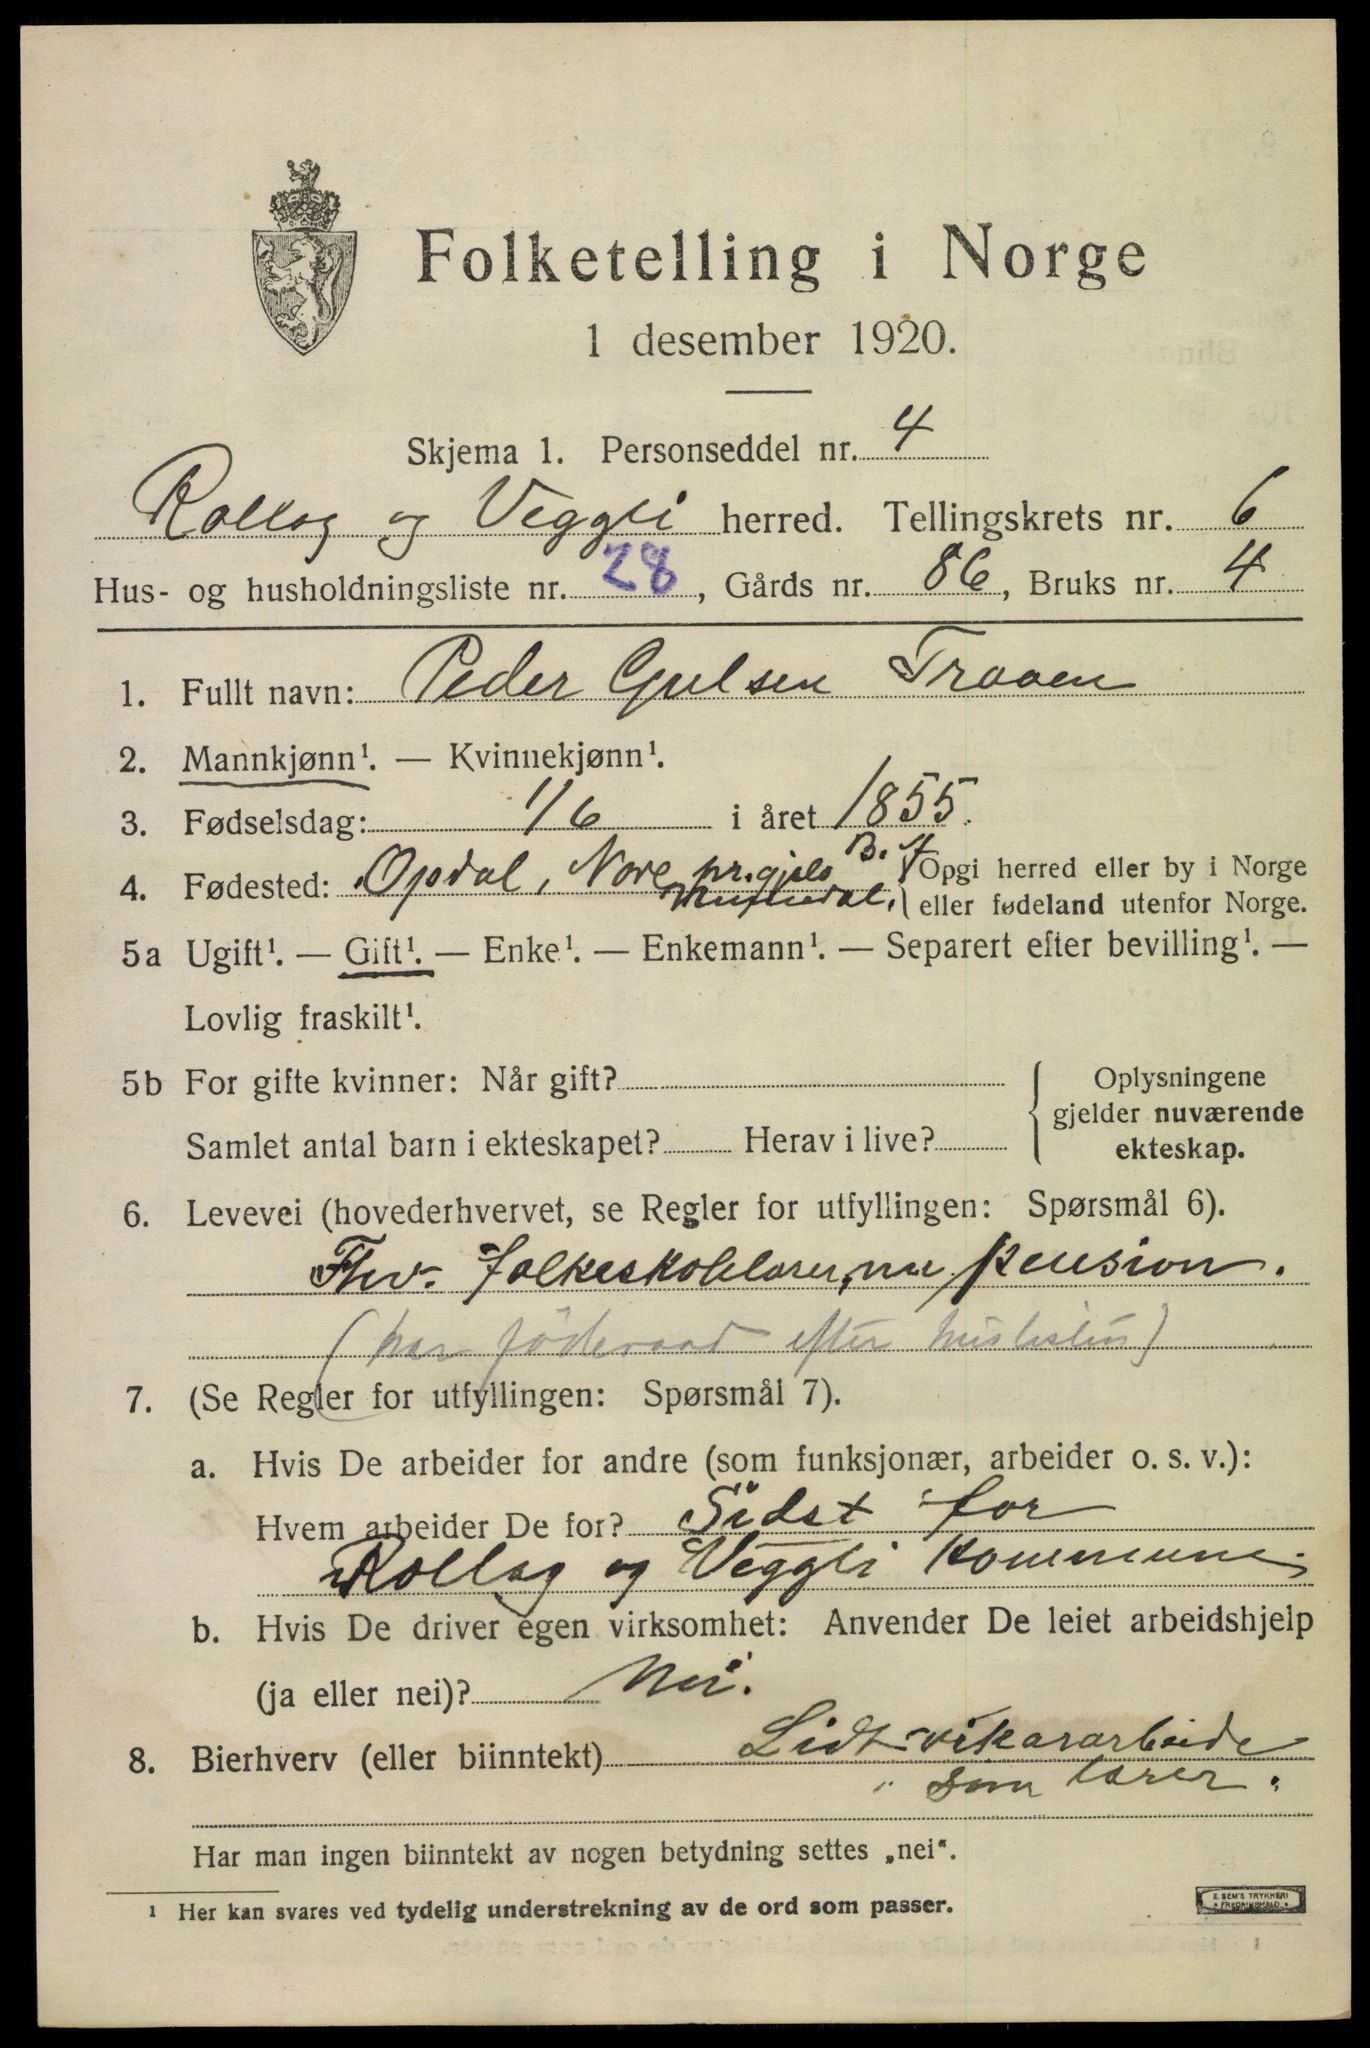 Folketelling i Norge
1 desember 1920.
Skjema 1. Personseddel nr. 4
Rollag og Veggli herred. Tellingskrets nr. 6
Hus- og husholdningsliste nr. 28, Gårds nr. 86, Bruks nr. 4
1. Fullt navn: Peder Gulsen Traaen
2. Mannkjønn¹. — Kvinnekjønn¹.
3. Fødselsdag: 1/6 i året 1855.
B.
4. Fødested: Opdal, Nore pr.gjeld Opgi herred eller by i Norge
Numedal, eller fødeland utenfor Norge.
5a Ugift¹. — Gift¹. — Enke¹. — Enkemann¹. — Separert efter bevilling¹. —
Lovlig fraskilt¹.
5b For gifte kvinner: Når gift? Oplysningene
gjelder nuværende
Samlet antal barn i ekteskapet? Herav i live? ekteskap.
6. Levevei (hovederhvervet, se Regler for utfyllingen: Spørsmål 6).
Fhv. folkeskolelærer, nu pension.
(har föderaad efter huslisten)
7. (Se Regler for utfyllingen: Spørsmål 7).
a. Hvis De arbeider for andre (som funksjonær, arbeider o. s. v.):
Hvem arbeider De for? Sidst for
Rollag og Veggli kommune.
b. Hvis De driver egen virksomhet: Anvender De leiet arbeidshjelp
(ja eller nei)? Nei.
8. Bierhverv (eller biinntekt) Lidt vikararbeide
som lærer.
Har man ingen biinntekt av nogen betydning settes „nei“.
¹ Her kan svares ved tydelig understrekning av de ord som passer.
E. SEM'S TRYKKERI
FREDRIKSHALD